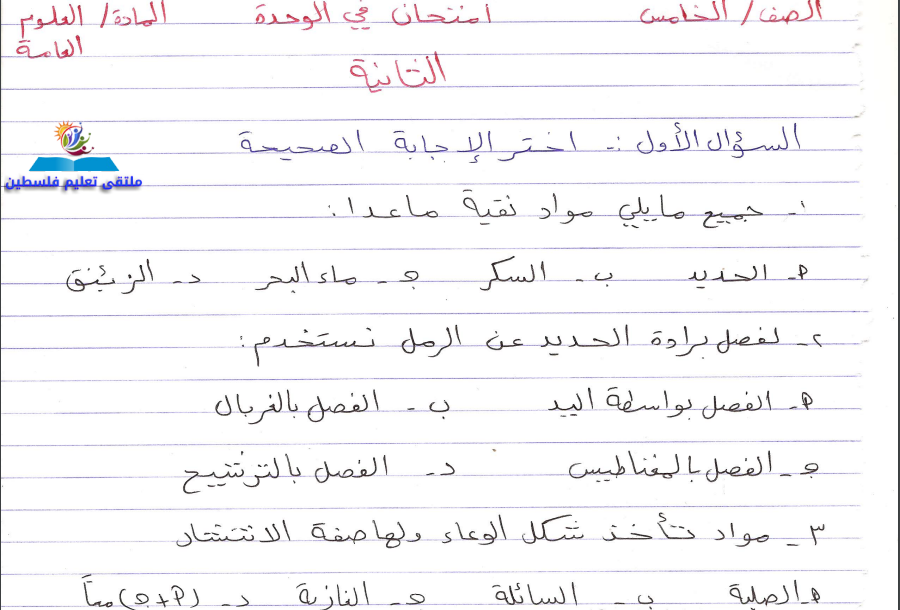 الصف / الخامس امتحان في الوحدة المادة / العلوم
العامة
الثانية
السؤال الأول :- اختر الإجابة الصحيحة
ملتقى تعليم فلسطين
١- جميع مايلي مواد نقية ماعدا :
P- الحديد ب- السكر ج- ماء البحر د- الزئبق
٢- لفصل برادة الحديد عن الرمل نستخدم :
P- الفصل بواسطة اليد ب- الفصل بالغربال
ج- الفصل بالمغناطيس د- الفصل بالترشيح
٣- مواد تأخذ شكل الوعاء ولها صفة الانتشار
P- الصلبة ب- السائلة ج- الغازية د- (P+ج) معاً